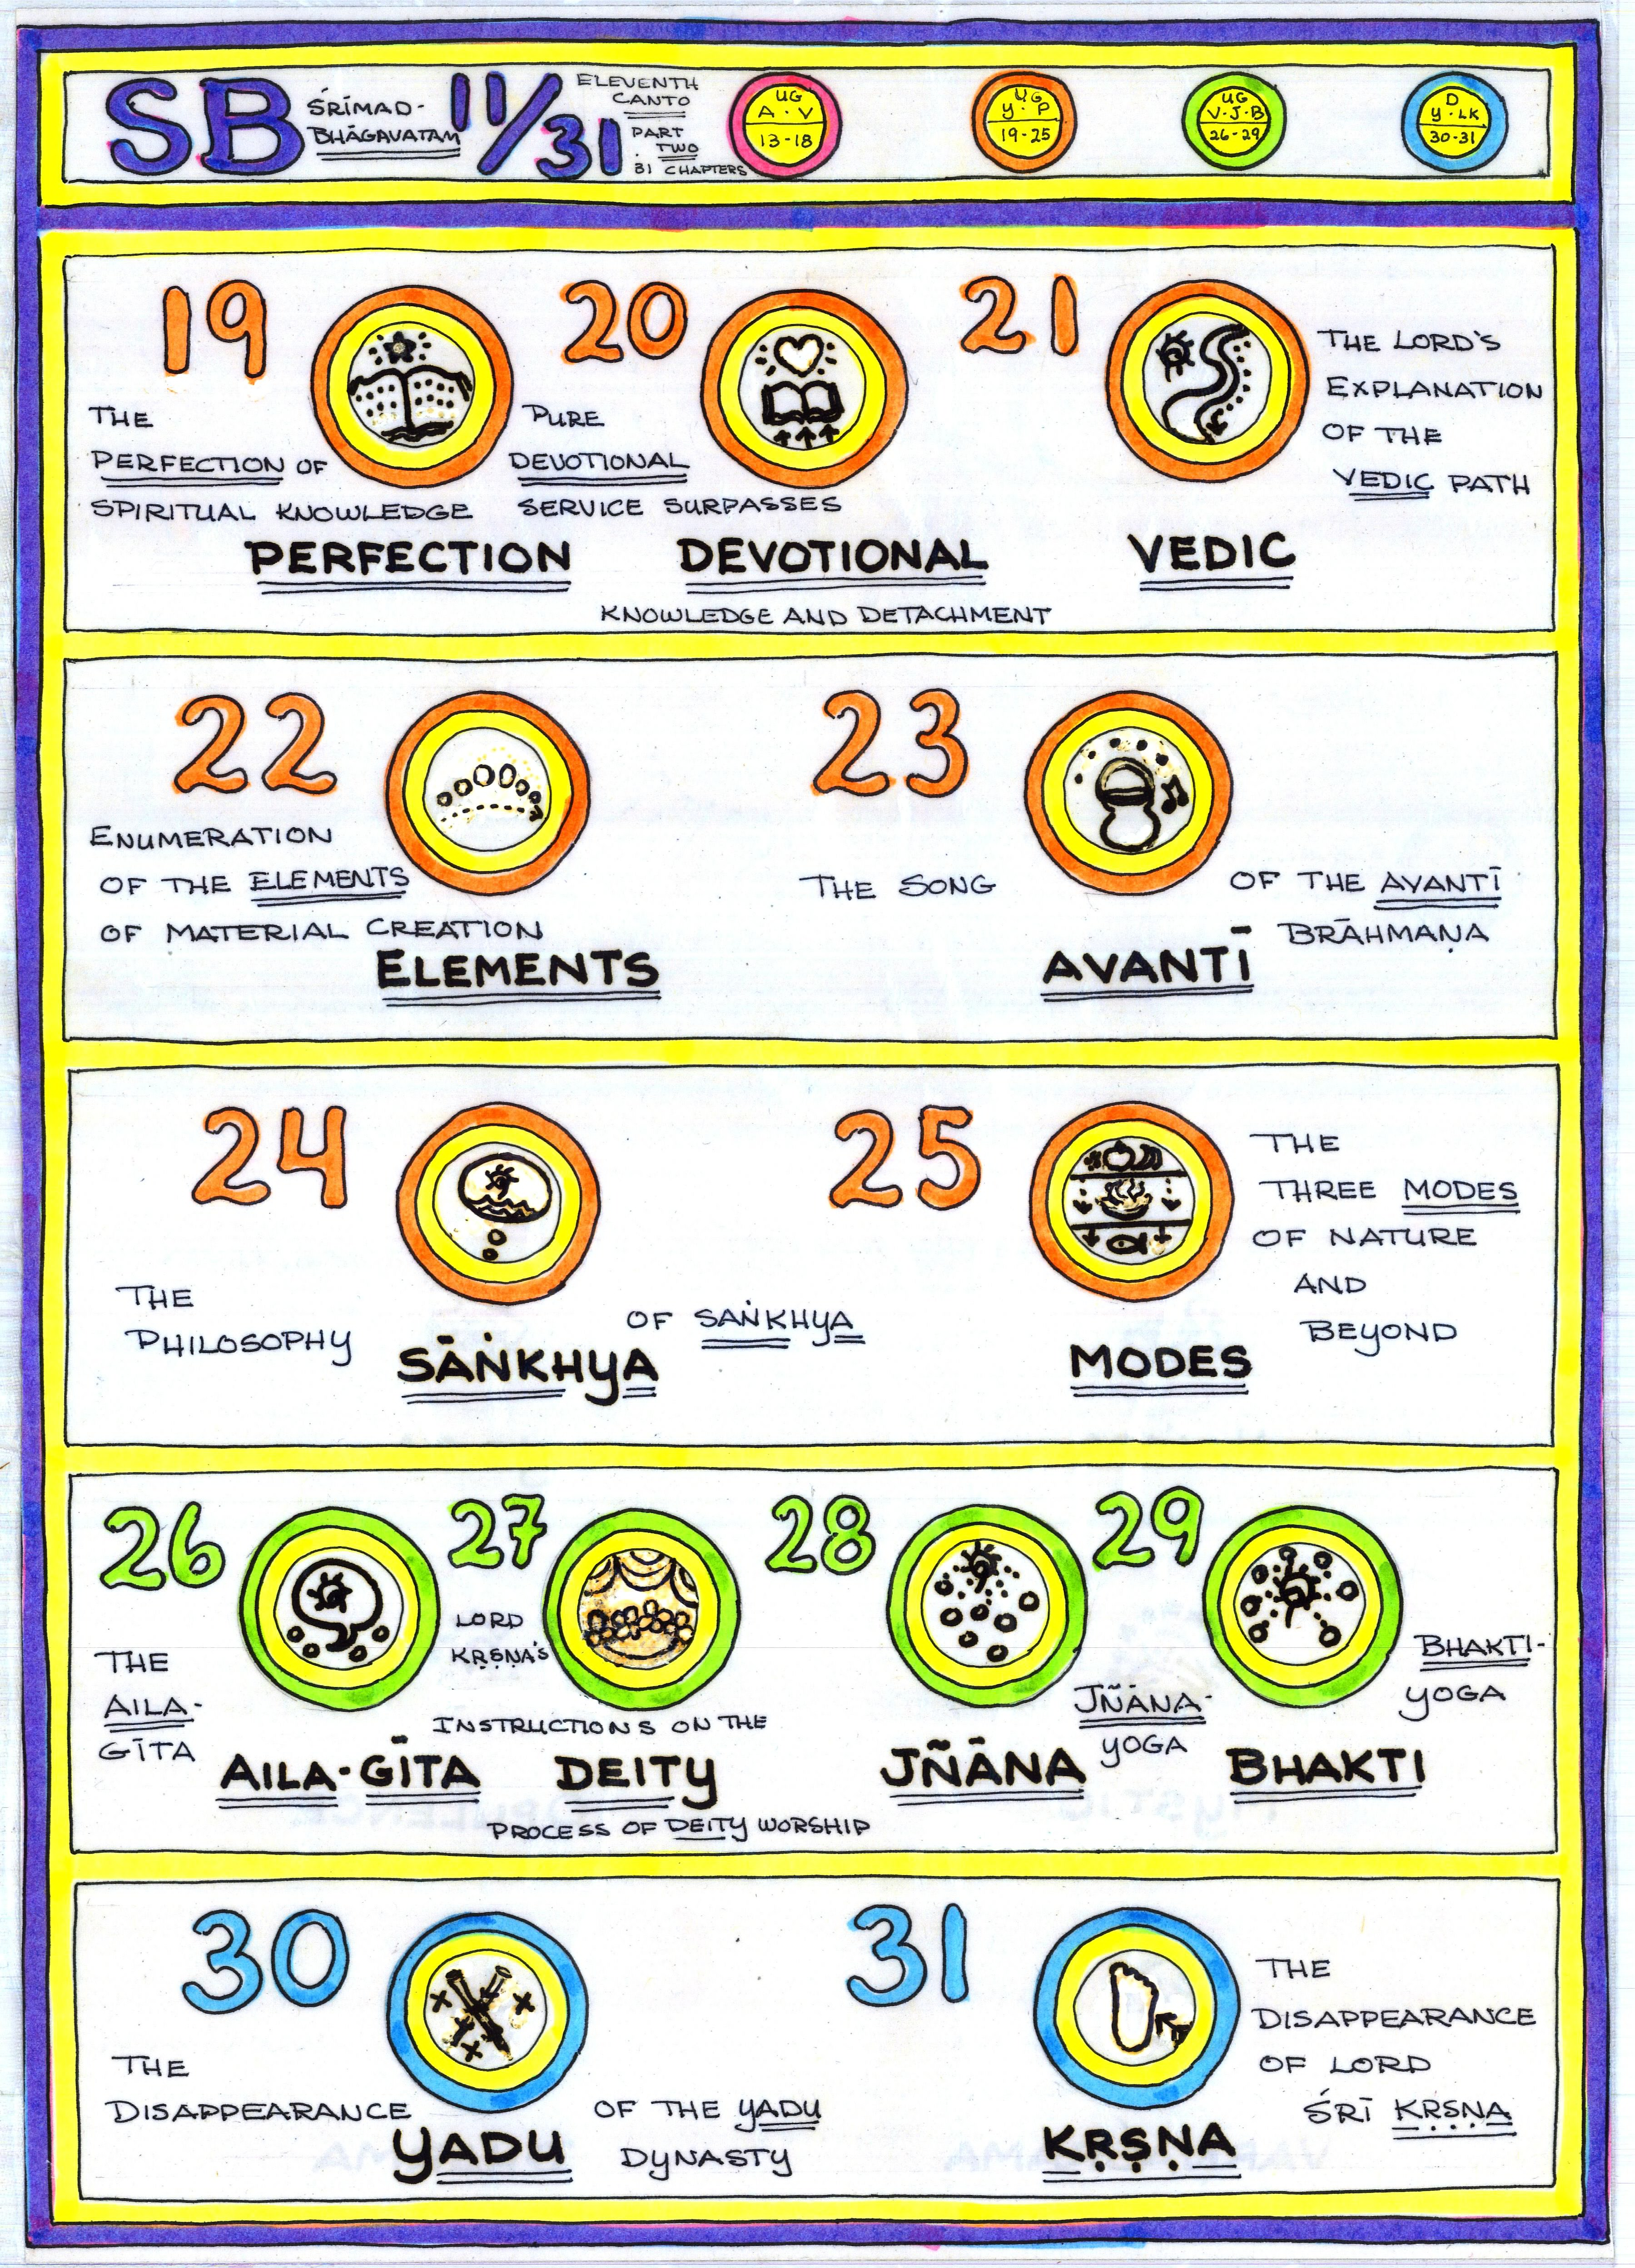 SB
ŚRĪMAD-
BHĀGAVATAM
11/31
ELEVENTH
CANTO
PART
TWO
31 CHAPTERS
UG
A · V
13-18
UG
Y · P
19-25
UG
V·J·B
26-29
D
Y·LK
30-31
19
THE
PERFECTION OF
SPIRITUAL KNOWLEDGE
PERFECTION
20
PURE
DEVOTIONAL
SERVICE SURPASSES
DEVOTIONAL
KNOWLEDGE AND DETACHMENT
21
THE LORD'S
EXPLANATION
OF THE
VEDIC PATH
VEDIC
22
ENUMERATION
OF THE ELEMENTS
OF MATERIAL CREATION
ELEMENTS
23
THE SONG
OF THE AVANTĪ
BRĀHMAṆA
AVANTĪ
24
THE
PHILOSOPHY
OF SAṄKHYA
SĀṄKHYA
25
THE
THREE MODES
OF NATURE
AND
BEYOND
MODES
26
THE
AILA-
GĪTA
AILA-GĪTA
27
LORD
KṚṢṆA'S
INSTRUCTIONS ON THE
DEITY
PROCESS OF DEITY WORSHIP
28
JÑĀNA-
YOGA
JÑĀNA
29
BHAKTI-
YOGA
BHAKTI
30
THE
DISAPPEARANCE
OF THE YADU
DYNASTY
YADU
31
THE
DISAPPEARANCE
OF LORD
ŚRĪ KṚṢṆA
KṚṢṆA